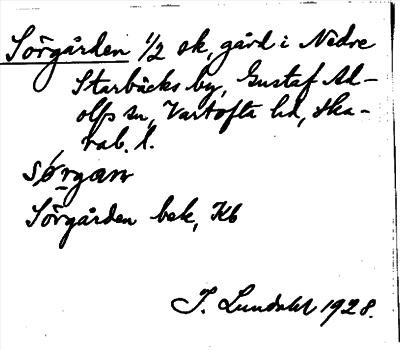 Sörgården 1/2 sk, gård i Nedre
Starbäcks by, Gustaf Ad-
olfs sn, Vartofta hd, Ska-
rab. l.
Sörgården bek, Kb
J. Lundahl 1928.